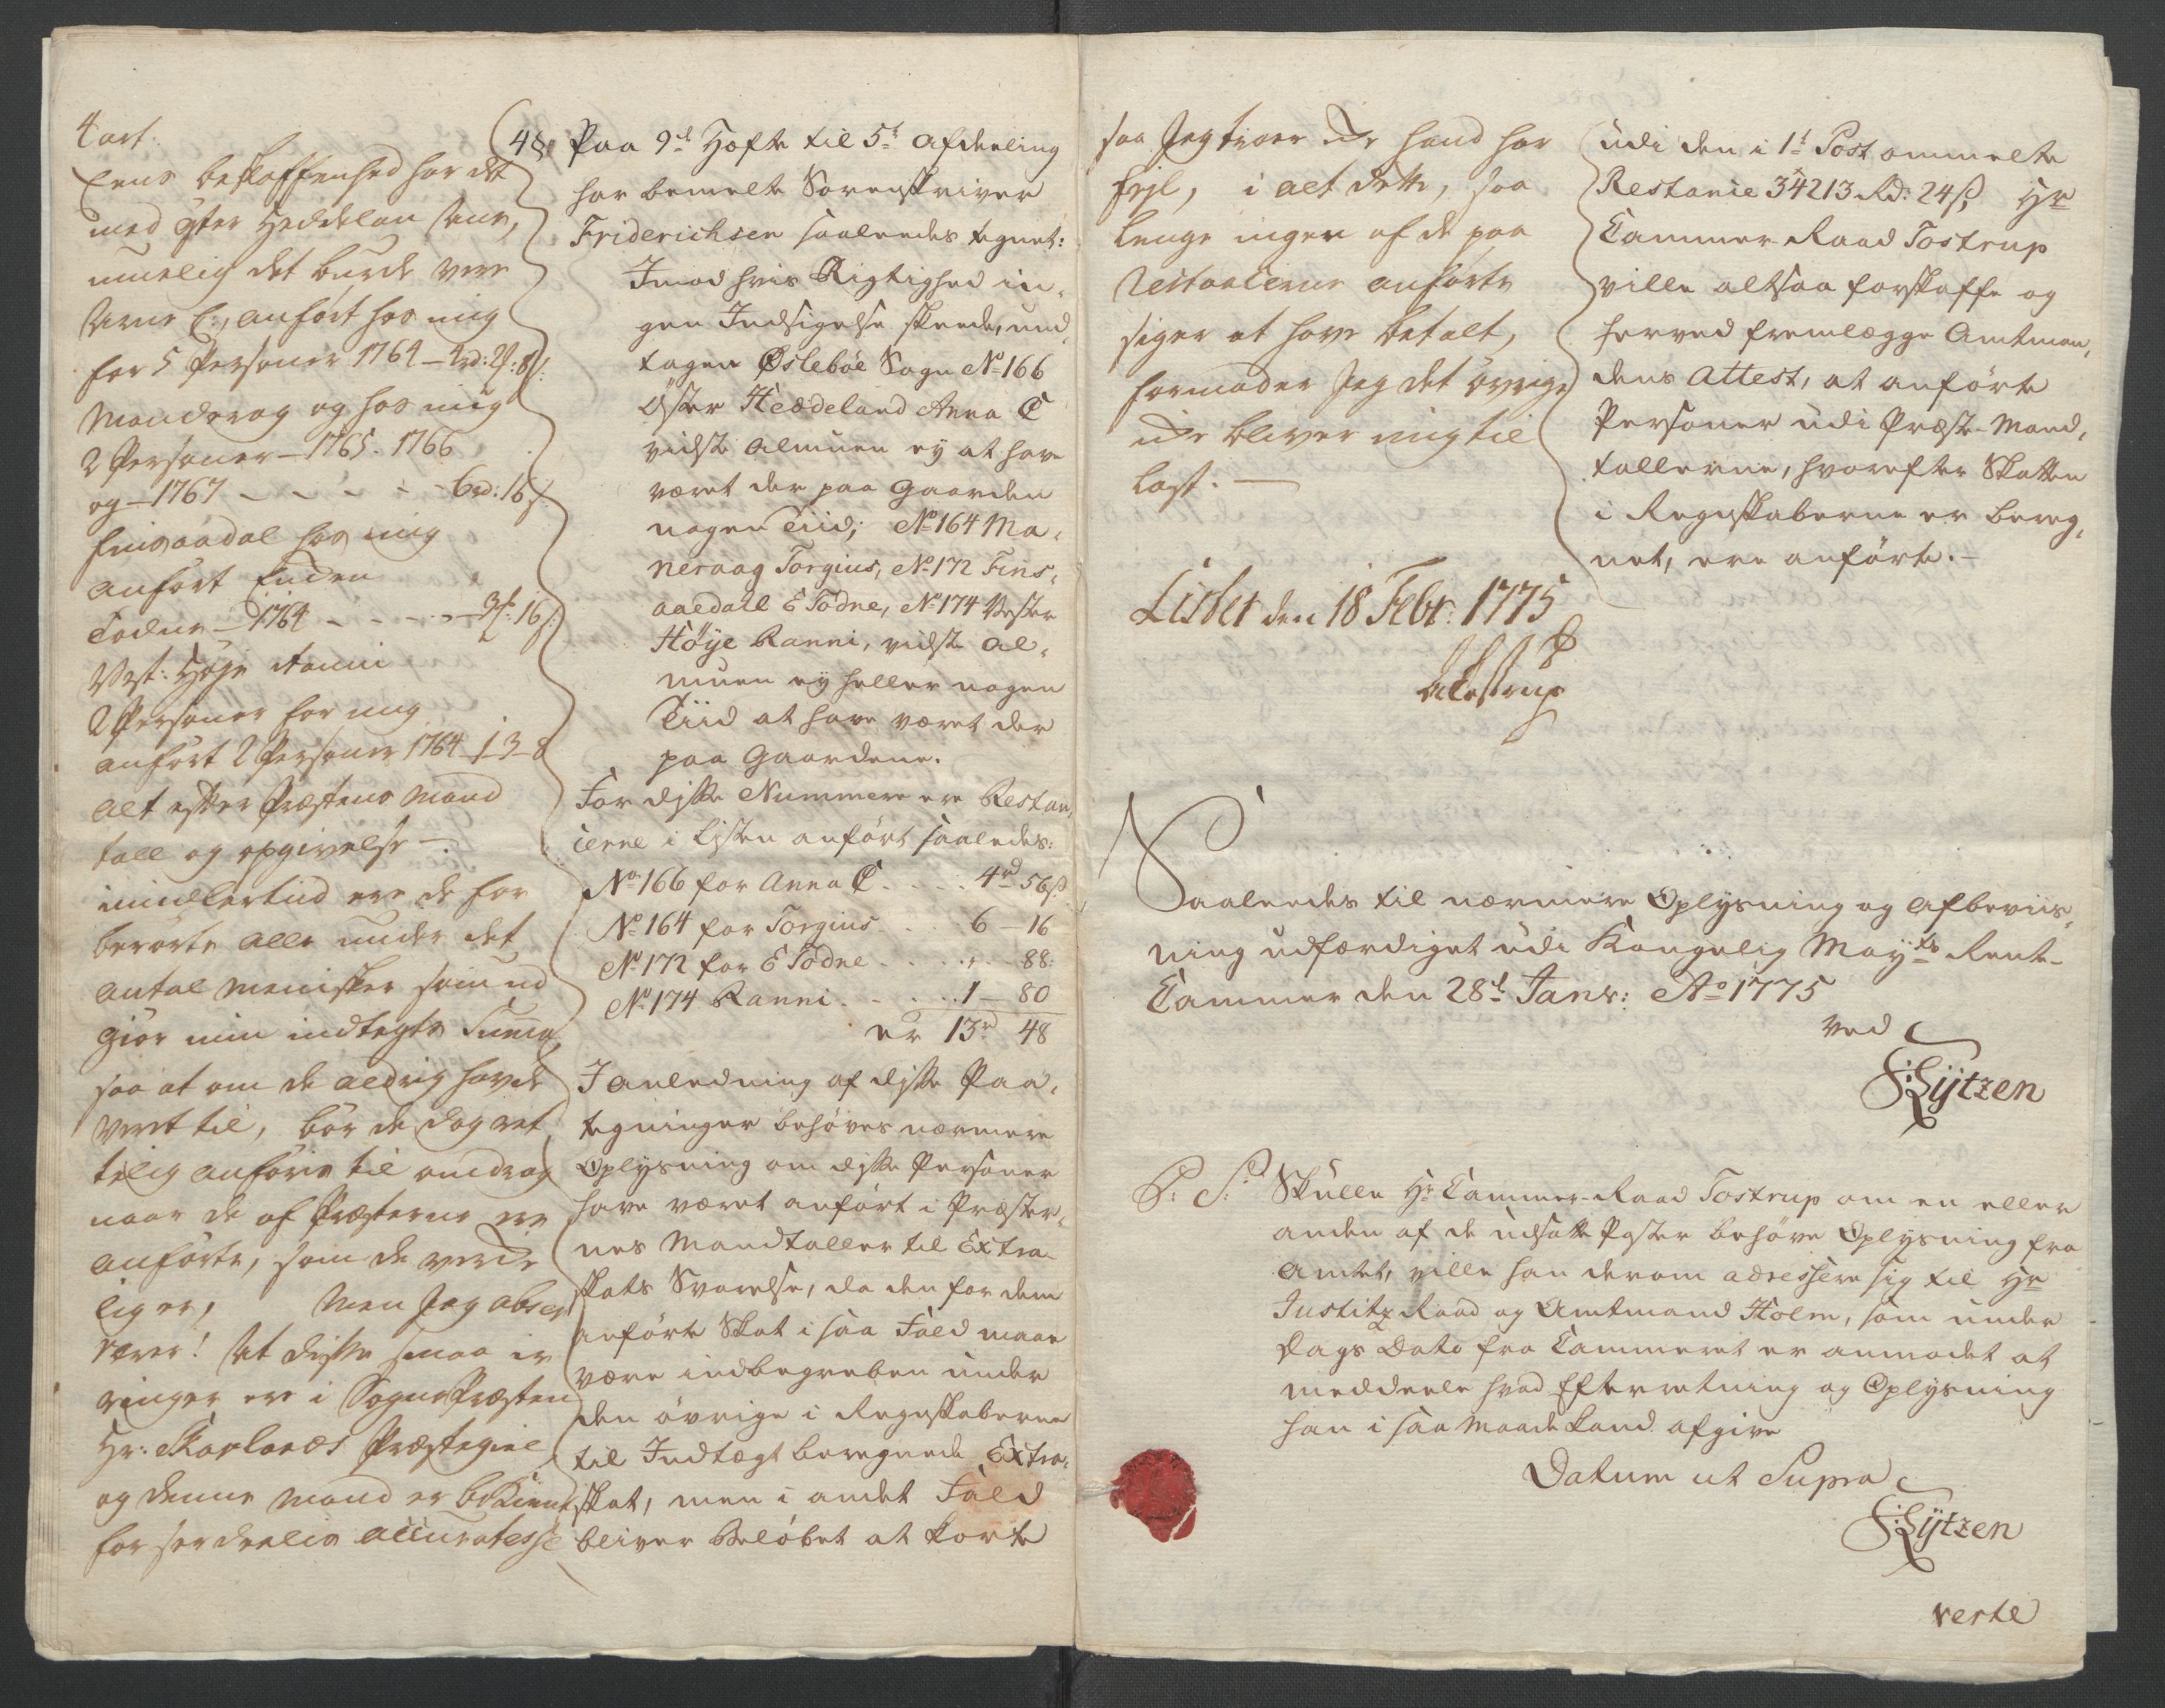 4 art:
Eens beskaffenhed har det
med öster Heddelan Anne,
nemlig det burde være
Arne C:, anfört hos mig
for 5 Personer 1764 – 2rd: 2
Mandsrag og hos mig
2 Personer – 1765. 1766
og – 1767 – – – – – 6rd: 16ſ
Finsaadal hos mig
anfört Enden
Todne – 1764 – – – – 3ſ: 16ſ:
Vest: Höje Ranni
2 Personer for mig
anfört 2 Personer 1764 – 1 – 3 – 8
alt efter Præstens Mand
tall og opgivelse –.
imidlertiid ere de for
berörte alle under det
antal Menisker som ud
giør min indtegts Summa,
saa at om de aldrig havde
vært til, bör de dog ret
telig anføres til
naar de af Præsterne ere
anförte, som de verke
lig er, Men Jeg obser
verer! At disse smaa
ringer ere i Sogne Præsten
Hr: Præstegiel
og denne Mand er bekiendt
for særdeelis accuratesse
4de Paa 9de Hæfte til 5te Afdeeling
har bemelte Sorenskriver
Friderichsen saaleedes tegnet:
Imod hvis Rigtighed in,
gen Indsigelse skeede, und,
tagen Øslebøe Sogn No 166
Øster Heædeland Anna C
vidste Almuen ey at have
været der paa Gaarden
nogen Tiid; No 164 Ma,
neraag Torgius, No 172 Fins,
aaedall E Todne, No 174 Vester
Høye Ranni, vidste Al,
muen ey heller nogen
Tiid at have været der
paa Gaardene.
For disse Nummere ere Restan,
cerne i Listen anført saaledes:
No 166 for Anna C . . . . 4rd 56ſ
No 164 for Torgius . . 6 – 16
No 172 for E Todne . . . . „ – 88:
No 174 Ranni . . . . . 1 – 80
er 13rd 48
I anledning af disse Paa,
tegninger behøves nærmere
Oplysning om disse Personer
have været anført i Præster,
nes Mandtaller til Extra
skats Svarelse, da den for dem
anførte Skat i saa Fald maae
være indbegreben under
den øvrige i Regnskaberne
til Indtægt beregnede Extra,
skat, men i andet Fald
bliver Beløbet at korte
saa Jeg troer icke hand har
fejl, i alt dette, saa
lenge ingen af de paa
Restancerne anførte
siger at have betalt,
formoder Jeg det övrige
icke bliver mig til
last. –
udi den i 1te Post ommelte
Restance 34213 Rd: 24ſ, Hr
Cammer-Raad Tostrup
ville altsaa forskaffe og
herved fremlægge Amtman,
dens Attest, at anførte
Personer udi Præste-Mand,
tallerne, hvorefter Skatten
i Regnskaberne er bereg,
net, ere anførte. –
Lister den 18 Febr: 1775
Tostrup
Saaleedes til nærmere Oplysning og Afbeviis,
ning udfærdiget udi Kongelig Mayts Rente-
Cammer den 28de Janr: Ao 1775
ved
F: Lytzen
P: S: Skulle Hr Cammer-Raad Tostrup om en eller
anden af de udsatte Poster behøve Oplysning fra
Amtet, ville han derom adressere sig til Hr
Justitz-Raad og Amtmand Holm, som under
Dags Dato fra Cammeret er anmodet at
meddeele hvad Efterretning og Oplysning
han i saa Maade kand afgive
Datum ut Supra
F: Lytzen
verte